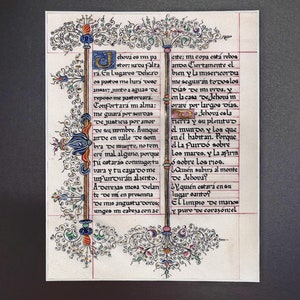 Jehová es mi pa
stor; nada falta
rá. En lugares de her
pastos me hará yace
junto a aguas de
reposo me pastoreará
Confortará mi alma;
me guiará por sendas
de justicia por amor
de su nombre. Aunque
ande en valle de som
bra de muerte, no tem
eré mal alguno, porque
tú estarás conmigo;
tu vara y tu cayado me
infundirán aliento.
Aderezas mesa delan
te de mí en presencia
de mis angustiadores;
unges mi cabeza con ac
eite; mi copa está rebos
ando. Ciertamente el
bien y la misericordia
me seguirán todos los
días de mi vida, y
en la casa de Jehová m
oraré por largos días.
De Jehová es la
tierra y su plenitud
el mundo, y los que
en él habitan. Porque
él la fundó sobre
los mares, y la afirmó
sobre los ríos.
¿Quién subirá al monte
de Jehová?
¿Y quién estará en su
lugar santo?
El limpio de manos
y puro de corazón; el